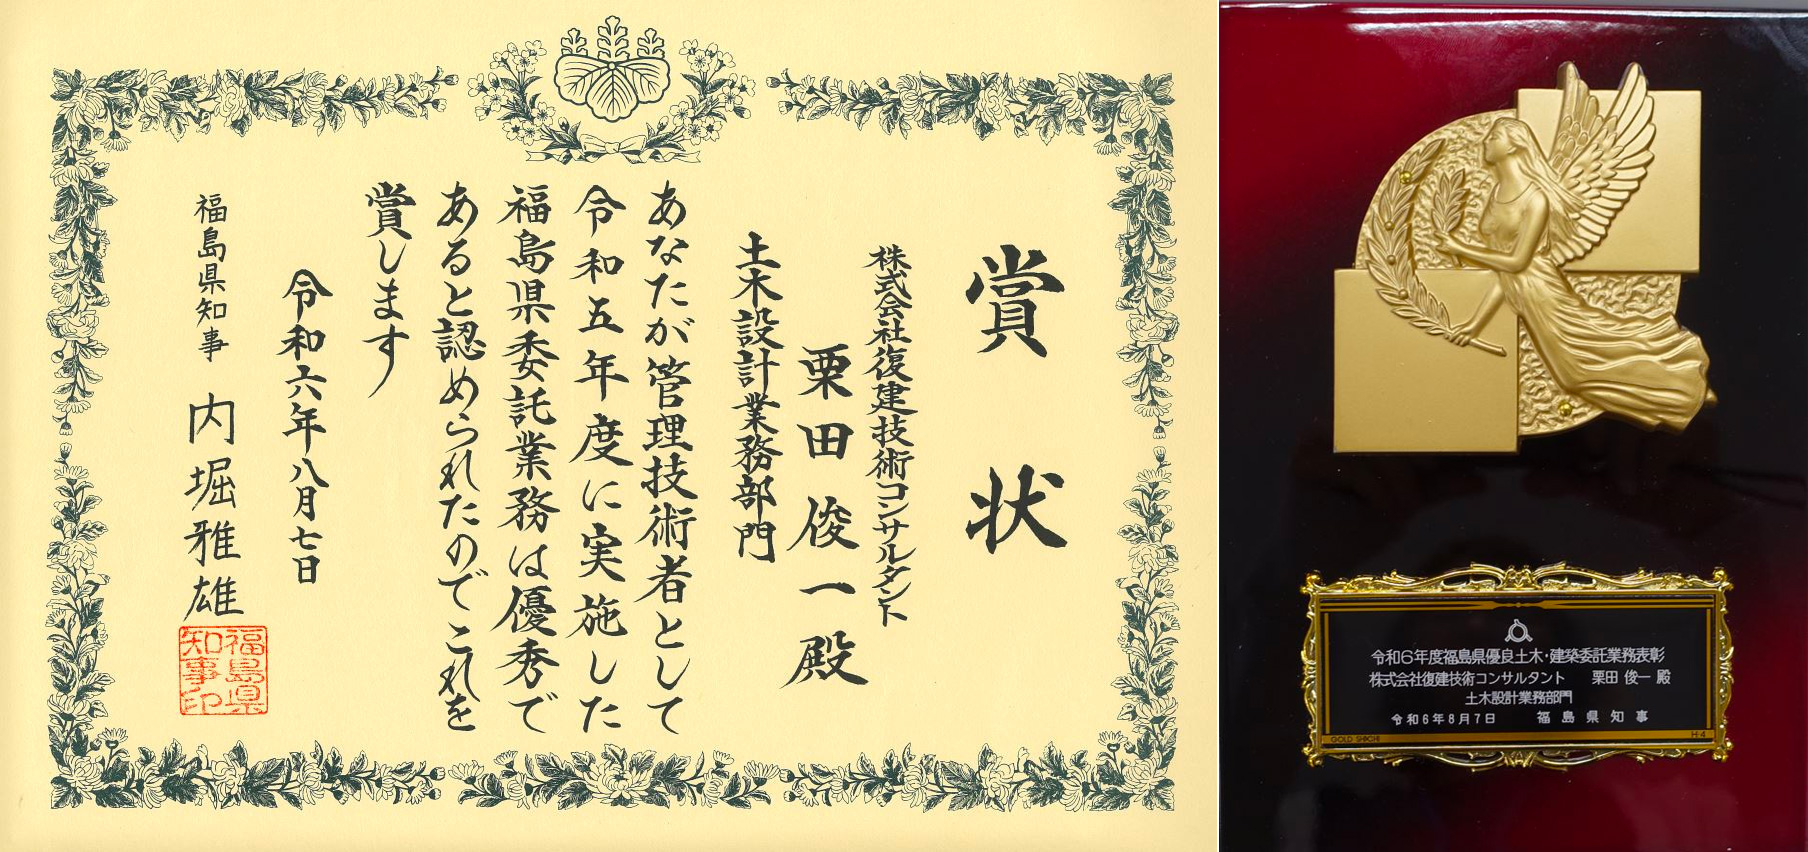 賞状
株式会社復建技術コンサルタント
栗田俊一殿
土木設計業務部門
あなたが管理技術者として
令和五年度に実施した
福島県委託業務は優秀で
あると認められたのでこれを
賞します
令和六年八月七日
福島県知事 内堀雅雄
福島県
知事印
令和6年度福島県優良土木・建築委託業務表彰
株式会社復建技術コンサルタント 栗田 俊一 殿
土木設計業務部門
令和6年8月7日 福島県知事
GOLD SHACHI H-4